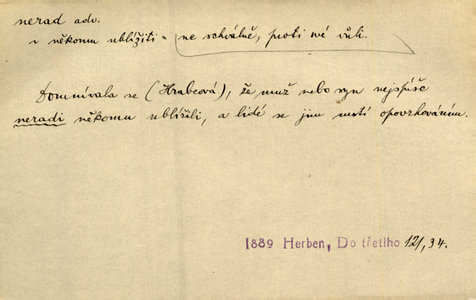 nerad adv.
n někomu ublížiti = ne schválně, proti své vůli.
Domnívala se (Hrabcová), že muž nebo syn nejspíše
neradi někomu ublížili, a lidé se jim mstí opovrhováním.
1889 Herben, Do třetího 12/, 34.